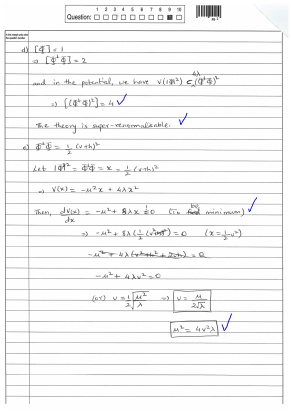 1 2 3 4 5 6 7 8 9 10
Question:
d) [Φ] = 1
⇒ [Φ†Φ] = 2
and in the potential, we have V(|Φ|²) ⊂ 4λ(Φ†Φ)²
⇒ [(Φ†Φ)²] = 4 ✓
The theory is super-renormalisable. ✓
e) Φ†Φ = 1/2 (v+h)²
Let |Φ|² = Φ†Φ = x = 1/2 (v+h)²
⇒ V(x) = -μ²x + 4λx²
Then, dV(x)/dx = -μ² + 8λx = 0 (to be minimum) ✓
⇒ -μ² + 8λ(1/2 (v+h)²) = 0 (x = 1/2 v²)
-μ² + 4λ(v² + h² + 2vh) = 0
-μ² + 4λv² = 0
(or) v = 1/2 √(μ²/λ) ⇒ v = μ/(2√λ)
μ² = 4v²λ ✓